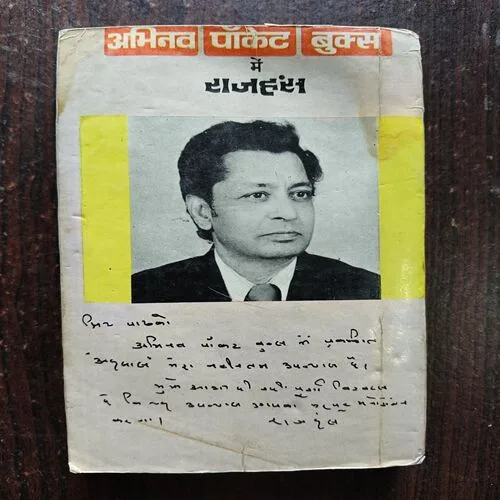 अभिनव पॉकेट बुक्स
में
राजहंस
प्रिय पाठकों।
अभिनव पॉकेट बुक्स में प्रकाशित
मेरा नवीनतम उपन्यास है।
मुझे आशा ही नहीं पूर्ण विश्वास
है कि यह उपन्यास आपका भरपूर मनोरंजन
करेगा। राजहंस